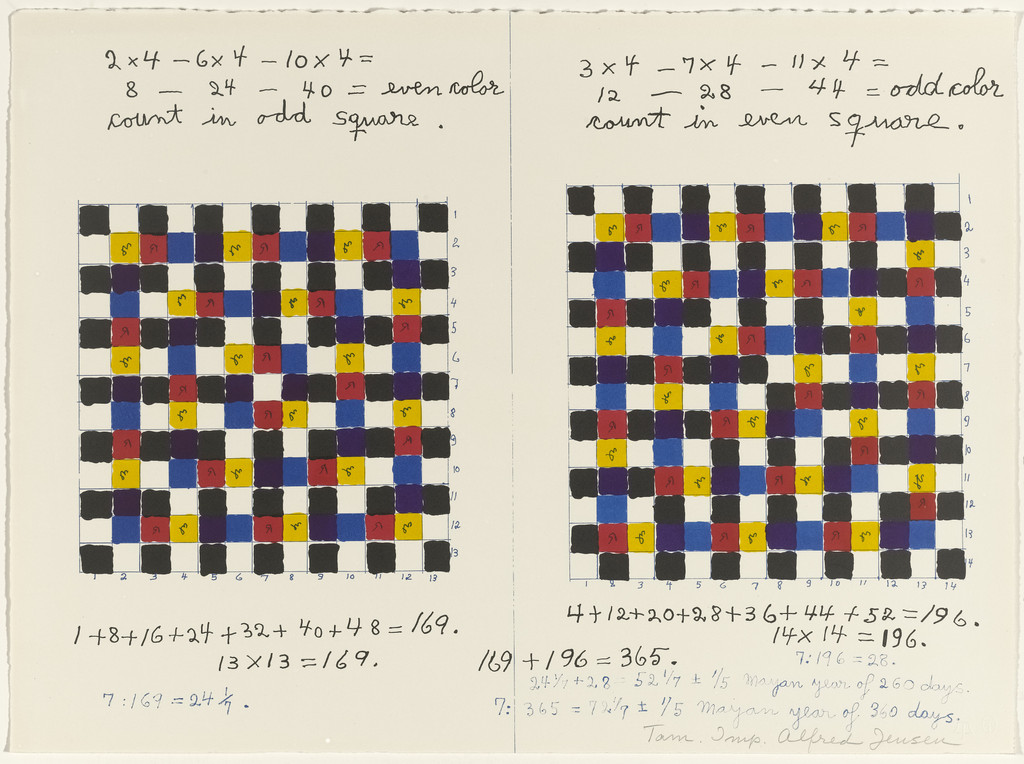 2×4 – 6×4 – 10×4 =
8 – 24 – 40 = even color
count in odd square.
3×4 – 7×4 – 11×4 =
12 – 28 – 44 = odd color
count in even square.
1
2
3
4
5
6
7
8
9
10
11
12
13
1 2 3 4 5 6 7 8 9 10 11 12 13
1
2
3
4
5
6
7
8
9
10
11
12
13
14
1 2 3 4 5 6 7 8 9 10 11 12 13 14
1+8+16+24+32+40+48=169.
13×13=169.
7:169=24 1/7.
4+12+20+28+36+44+52=196.
14×14=196.
169+196=365.
7:196=28.
24 1/7+28=52 1/7 ± 1/5 Mayan year of 260 days.
7: 365=72 1/7 ± 1/5 Mayan year of 360 days.
Tam. Imp. Alfred Jensen